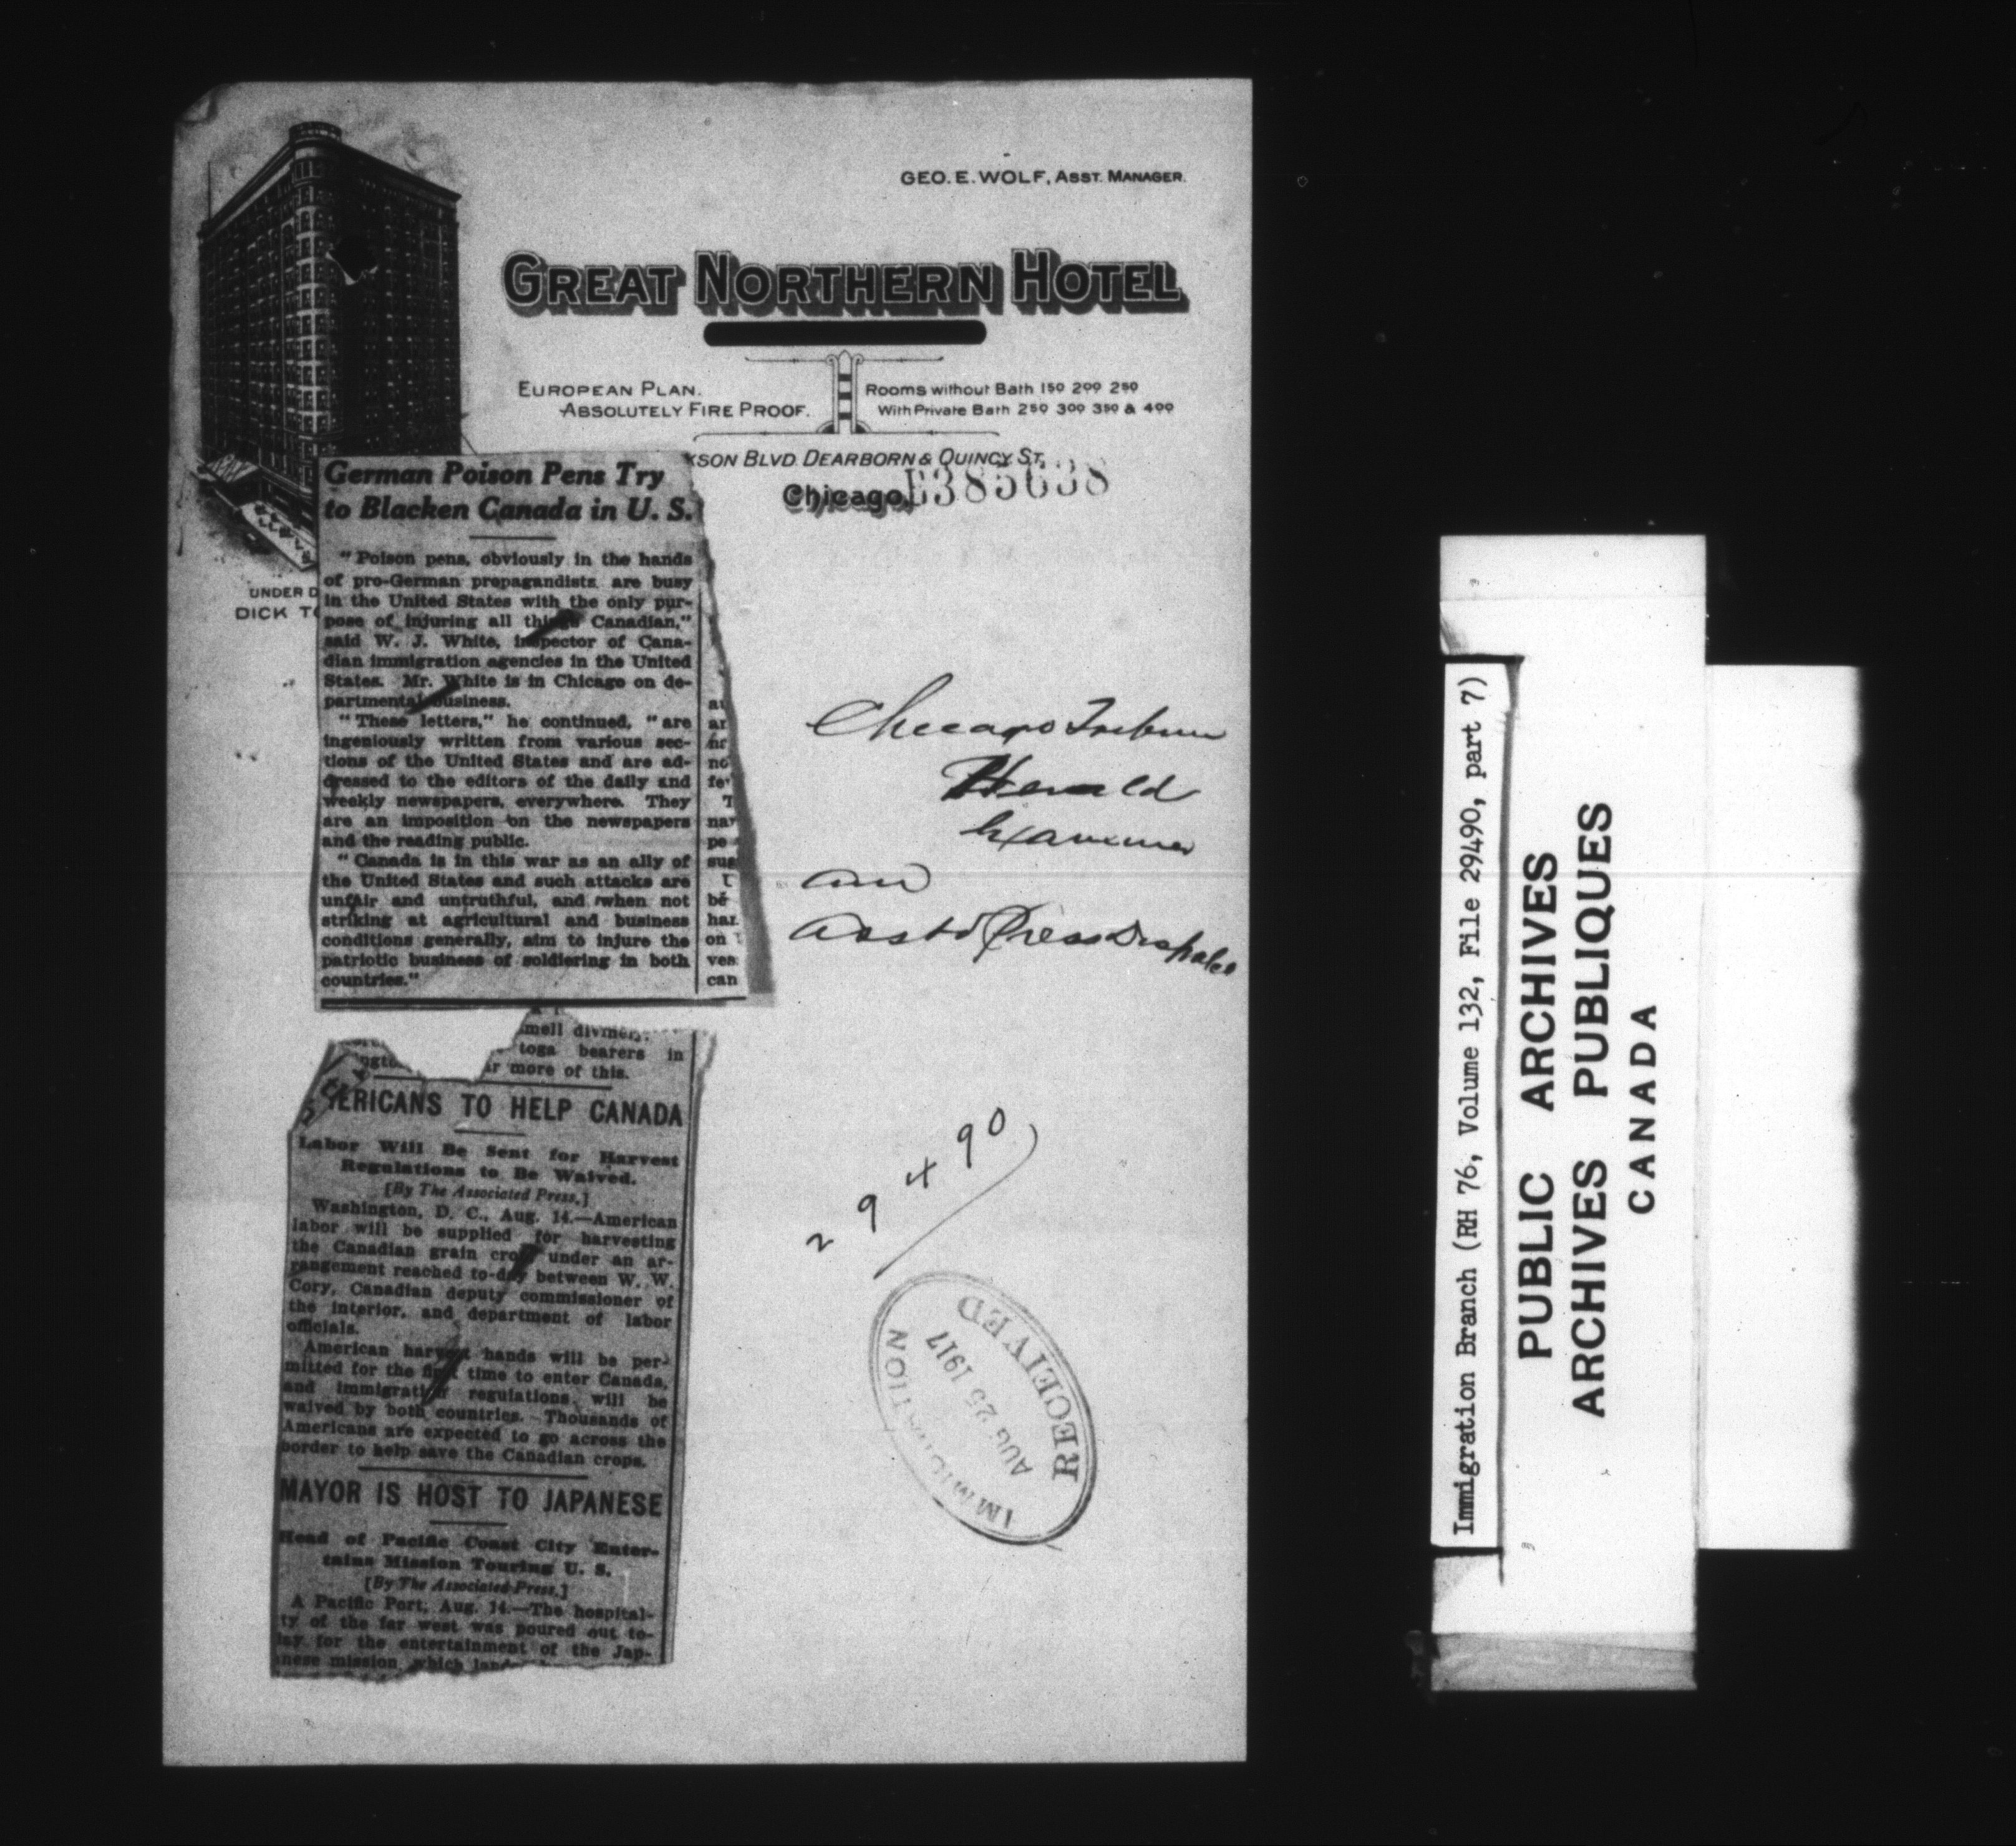 GEO. E. WOLF, ASST. MANAGER.
GREAT NORTHERN HOTEL
EUROPEAN PLAN.
ABSOLUTELY FIRE PROOF.
Rooms without Bath 1 50 2 00 2 50
With Private Bath 2 50 3 00 3 50 & 4 00
KSON BLVD. DEARBORN & QUINCY ST.
Chicago,
E385638
UNDER D
DICK TO
German Poison Pens Try
to Blacken Canada in U. S.
"Poison pens, obviously in the hands
of pro-German propagandists, are busy
in the United States with the only pur-
pose of injuring all things Canadian,"
said W. J. White, inspector of Cana-
dian immigration agencies in the United
States. Mr. White is in Chicago on de-
partmental business.
"These letters," he continued, "are
ingeniously written from various sec-
tions of the United States and are ad-
dressed to the editors of the daily and
weekly newspapers, everywhere. They
are an imposition on the newspapers
and the reading public.
"Canada is in this war as an ally of
the United States and such attacks are
unfair and untruthful, and when not
striking at agricultural and business
conditions generally, aim to injure the
patriotic business of soldiering in both
countries."
Chicago Tribune
Herald
Examiner
and
Asstd Press
toga bearers in
more of this.
ERICANS TO HELP CANADA
Labor Will Be Sent for Harvest
Regulations to Be Waived.
[By The Associated Press.]
Washington, D. C., Aug. 14.—American
labor will be supplied for harvesting
the Canadian grain crop under an ar-
rangement reached to-day between W. W.
Cory, Canadian deputy commissioner of
the interior, and department of labor
officials.
American harvest hands will be per-
mitted for the first time to enter Canada,
and immigration regulations will be
waived by both countries. Thousands of
Americans are expected to go across the
border to help save the Canadian crops.
MAYOR IS HOST TO JAPANESE
Head of Pacific Coast City Enter-
tains Mission Touring U. S.
[By The Associated Press.]
A Pacific Port, Aug. 14.—The hospital-
ty of the far west was poured out to-
day for the entertainment of the Jap-
nese mission which
29490
IMMIGRATION
AUG 25 1917
RECEIVED
Immigration Branch (RH 76, Volume 132, File 29490, part 7)
PUBLIC ARCHIVES
ARCHIVES PUBLIQUES
CANADA